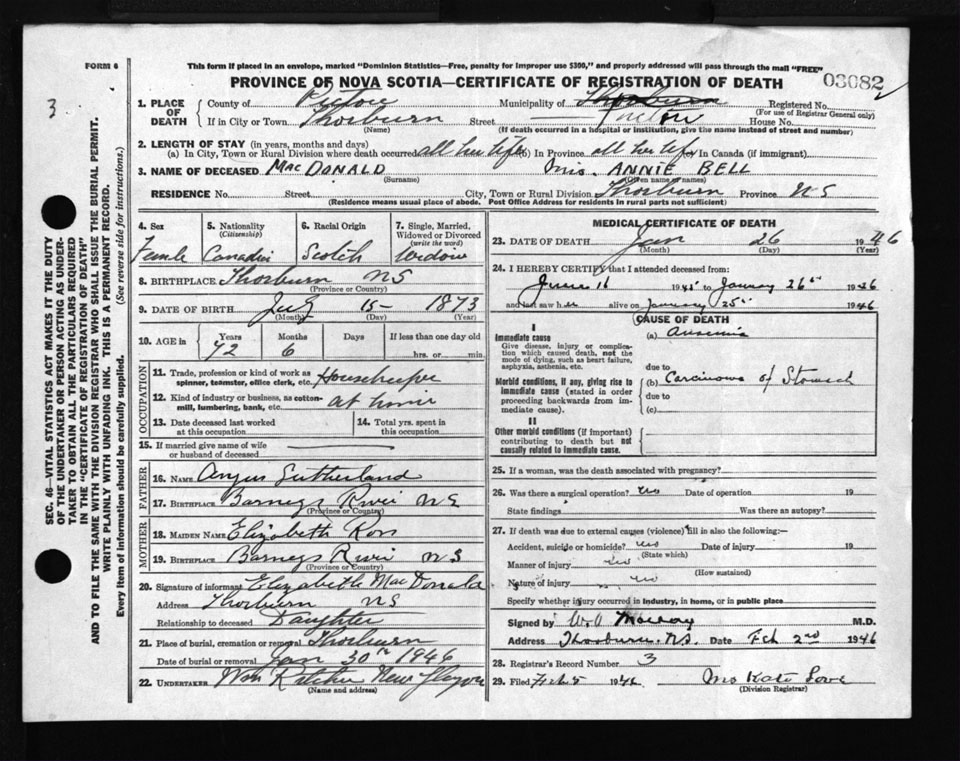 FORM 6
This form if placed in an envelope, marked "Dominion Statistics—Free, penalty for improper use $300," and properly addressed will pass through the mail "FREE"
PROVINCE OF NOVA SCOTIA—CERTIFICATE OF REGISTRATION OF DEATH
03082
3
1. PLACE OF DEATH
County of Pictou Municipality of Thorburn Registered No.
(For use of Registrar General only)
Pictou
If in City or Town Thorburn Street House No.
(Name) (If death occurred in a hospital or institution, give the name instead of street and number)
2. LENGTH OF STAY (in years, months and days)
(a) In City, Town or Rural Division where death occurred all her life (b) In Province all her life In Canada (if immigrant)
3. NAME OF DECEASED MacDONALD Mrs. ANNIE BELL
(Surname) (Given name or names)
RESIDENCE No. Street City, Town or Rural Division Thorburn Province NS
(Residence means usual place of abode. Post Office Address for residents in rural parts not sufficient)
4. Sex
Female
5. Nationality
(Citizenship)
Canadin
6. Racial Origin
Scotch
7. Single, Married, Widowed or Divorced
(write the word)
Widow
8. BIRTHPLACE Thorburn NS
(Province or Country)
9. DATE OF BIRTH July 15 1873
(Month) (Day) (Year)
10. AGE in
Years 72
Months 6
Days
If less than one day old
hrs. or min.
OCCUPATION
11. Trade, profession or kind of work as spinner, teamster, office clerk, etc. Housekeeper
12. Kind of industry or business, as cotton-mill, lumbering, bank, etc. at home
13. Date deceased last worked at this occupation
14. Total yrs. spent in this occupation
15. If married give name of wife or husband of deceased
FATHER
16. NAME Angus Sutherland
17. BIRTHPLACE Barneys River NS
(Province or Country)
MOTHER
18. MAIDEN NAME Elizabeth Ross
19. BIRTHPLACE Barneys River NS
(Province or Country)
20. Signature of informant Elizabeth MacDonald
Address Thorburn NS
Relationship to deceased Daughter
21. Place of burial, cremation or removal Thorburn
Date of burial or removal Jan 30th 1946
22. UNDERTAKER Wm New Glasgow
(Name and address)
MEDICAL CERTIFICATE OF DEATH
23. DATE OF DEATH Jan 26 1946
(Month) (Day)
24. I HEREBY CERTIFY that I attended deceased from:
June 16 1945 to January 26th 1946
and last saw her alive on January 25th 1946
CAUSE OF DEATH
I
Immediate cause
Give disease, injury or complication which caused death, not the mode of dying, such as heart failure, asphyxia, asthenia, etc.
(a) Anaemia
due to
Morbid conditions, if any, giving rise to immediate cause (stated in order proceeding backwards from immediate cause).
(b) Carcinoma of Stomach
due to
(c)
II
Other morbid conditions (if important) contributing to death but not causally related to immediate cause.
25. If a woman, was the death associated with pregnancy?
26. Was there a surgical operation? no Date of operation 19
State findings Was there an autopsy?
27. If death was due to external causes (violence) fill in also the following:—
Accident, suicide or homicide? no Date of injury 19
(State which)
Manner of injury no
(How sustained)
Nature of injury no
Specify whether injury occurred in industry, in home, or in public place
Signed by M.D.
Address Thorburn, N.S. Date Feb 2nd 1946
28. Registrar's Record Number 3
29. Filed Feb 5 1946 Mrs Kate Lowe
(Division Registrar)
SEC. 46—VITAL STATISTICS ACT MAKES IT THE DUTY
OF THE UNDERTAKER OR PERSON ACTING AS UNDER-
TAKER TO OBTAIN ALL THE PARTICULARS REQUIRED
IN THE "CERTIFICATE OF REGISTRATION OF DEATH"
AND TO FILE THE SAME WITH THE DIVISION REGISTRAR WHO SHALL ISSUE THE BURIAL PERMIT.
WRITE PLAINLY WITH UNFADING INK. THIS IS A PERMANENT RECORD.
Every item of information should be carefully supplied. (See reverse side for instructions.)